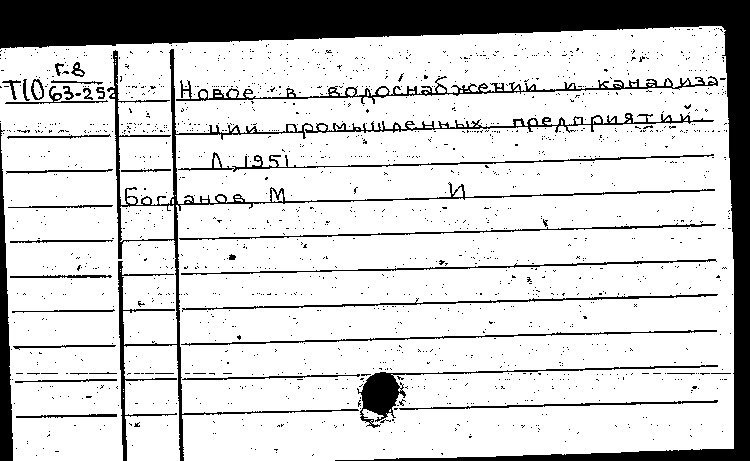 Г-8
Т10 63-252
Новое в водоснабжении и канализа-
ции промышленных предприятий.
Л., 1951.
Богданов, М И